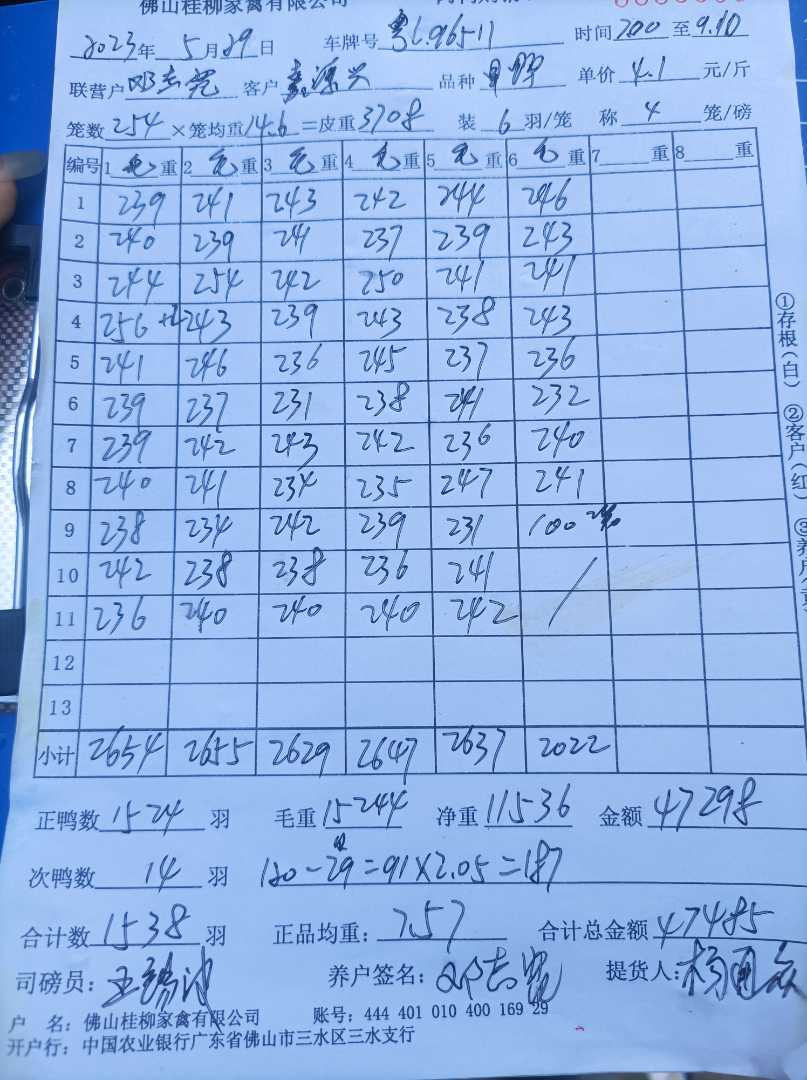 佛山桂柳家禽有限公司
2023年 5月29日 车牌号 粤L96511 时间 700 至 9.10
联营户 邓志宽 客户 鑫源兴 品种 单价 4.1 元/斤
笼数 254 ×笼均重 14.6 =皮重 3708 装 6 羽/笼 称 4 笼/磅
编号 1 毛 重 2 毛 重 3 毛 重 4 毛 重 5 毛 重 6 毛 重 7 重 8 重
1 239 241 243 242 244 246
2 240 239 241 237 239 243
3 244 254 242 250 241 241
4 256 243 239 243 238 243
5 241 246 236 245 237 236
6 239 237 231 238 241 232
7 239 242 243 242 236 240
8 240 241 234 235 247 241
9 238 234 242 239 231 100
10 242 238 238 236 241 /
11 236 240 240 240 242
12
13
小计 2654 2655 2629 2647 2637 2022
正鸭数 1524 羽 毛重 15244 净重 11536 金额 47298
次鸭数 14 羽 120-29=91×2.05=187
合计数 1538 羽 正品均重: 7.57 合计总金额 47485
司磅员: 养户签名: 邓志宽 提货人:
户 名: 佛山桂柳家禽有限公司 账号: 444 401 010 400 169 29
开户行: 中国农业银行广东省佛山市三水区三水支行
①存根(白) ②客户(红)